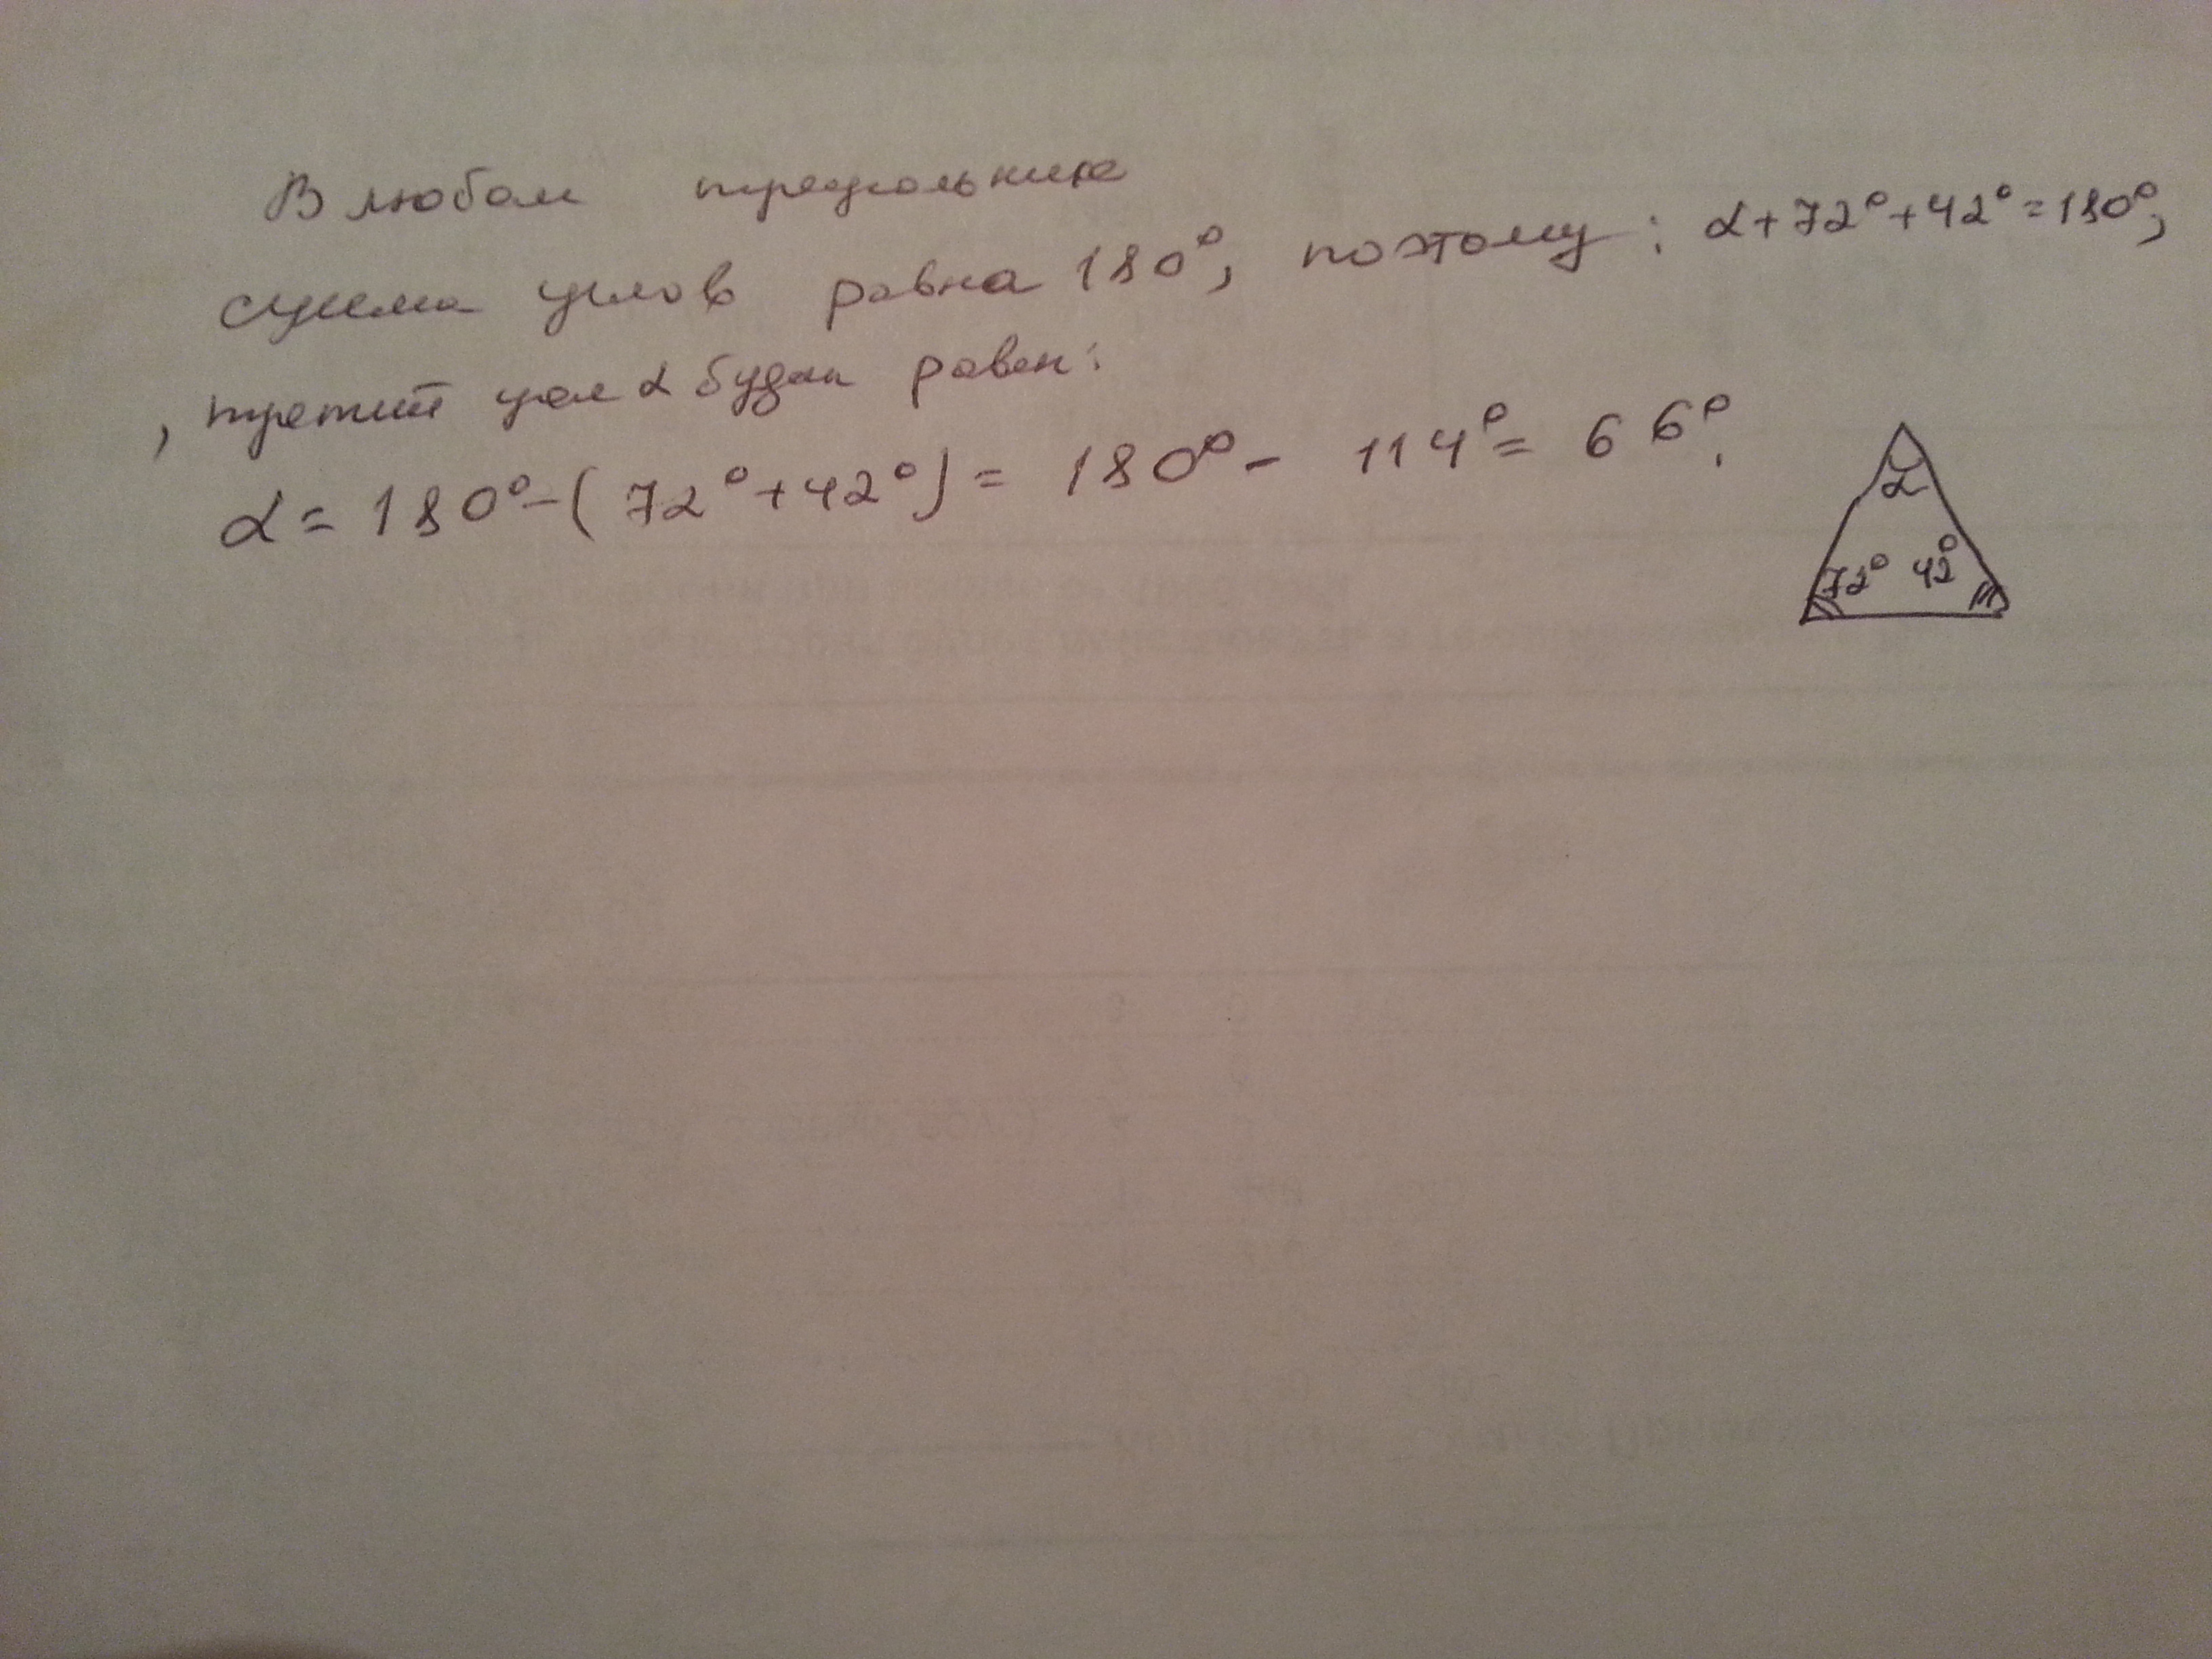 В любом треугольнике
сумма углов равна 180°, поэтому: α+72°+42°=180°,
, третий угол α будет равен:
α = 180°-(72°+42°) = 180°- 114°= 66°.
α
72° 42°